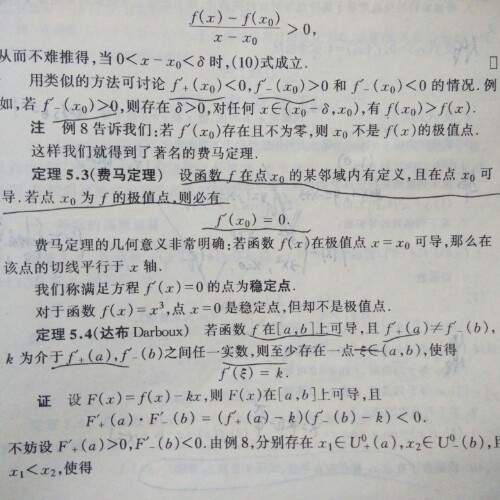 f(x)-f(x₀)
x-x₀
>0,
从而不难推得,当0<x-x₀<δ时,(10)式成立. □
用类似的方法可讨论f′₊(x₀)<0,f′₋(x₀)>0和f′₋(x₀)<0的情况.例
如,若f′₋(x₀)>0,则存在δ>0,对任何x∈(x₀-δ,x₀),有f(x₀)>f(x).
注 例8告诉我们:若f′(x₀)存在且不为零,则x₀不是f(x)的极值点.
这样我们就得到了著名的费马定理.
定理5.3(费马定理) 设函数f在点x₀的某邻域内有定义,且在点x₀可
导.若点x₀为f的极值点,则必有
f′(x₀)=0.
费马定理的几何意义非常明确:若函数f(x)在极值点x=x₀可导,那么在
该点的切线平行于x轴.
我们称满足方程f′(x)=0的点为稳定点.
对于函数f(x)=x³,点x=0是稳定点,但却不是极值点.
定理5.4(达布Darboux) 若函数f在[a,b]上可导,且f′₊(a)≠f′₋(b),
k为介于f′₊(a),f′₋(b)之间任一实数,则至少存在一点ξ∈(a,b),使得
f′(ξ)=k.
证 设F(x)=f(x)-kx,则F(x)在[a,b]上可导,且
F′₊(a)·F′₋(b)=(f′₊(a)-k)(f′₋(b)-k)<0.
不妨设F′₊(a)>0,F′₋(b)<0.由例8,分别存在x₁∈U⁰₊(a),x₂∈U⁰₋(b),且
x₁<x₂,使得